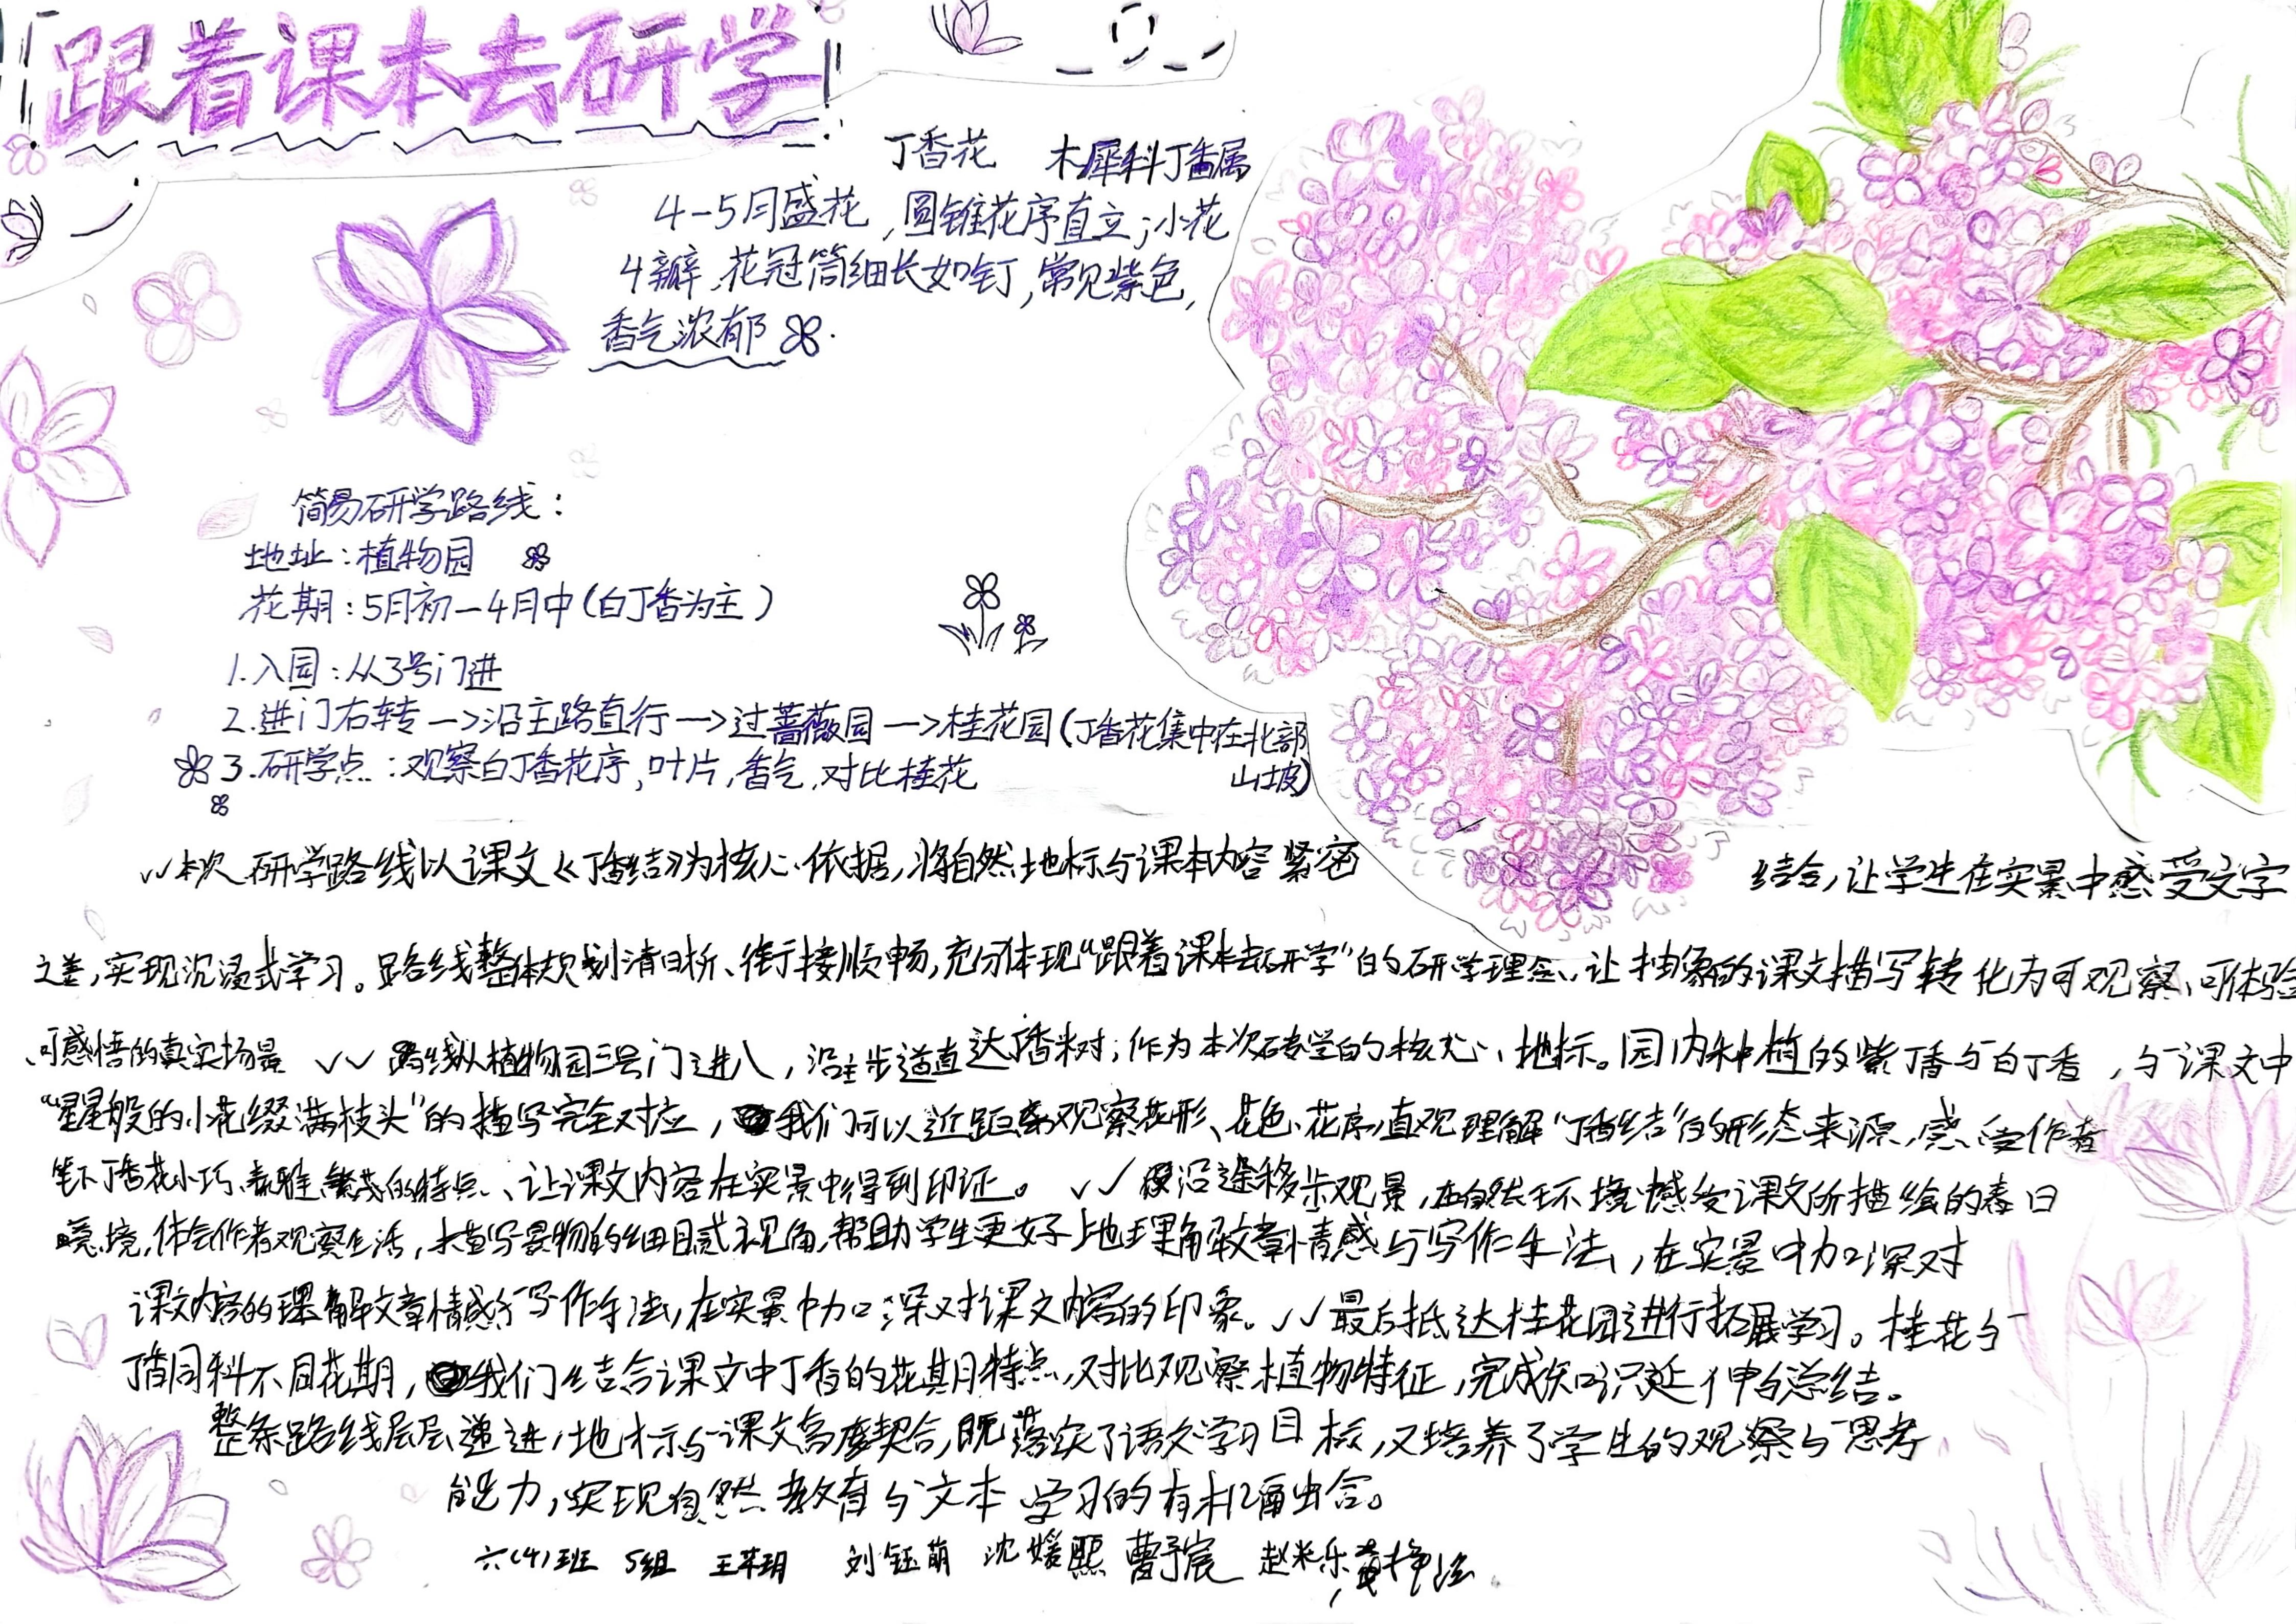 跟着课本去研学
丁香花 木犀科丁香属
4-5月盛花,圆锥花序直立;小花
4瓣,花冠筒细长如钉,常见紫色,
香气浓郁
简易研学路线:
地址:植物园
花期:5月初-4月中(白丁香为主)
1.入园:从3号门进
2.进门右转->沿主路直行->过蔷薇园->桂花园(丁香花集中在北部
山坡)
3.研学点:观察白丁香花序,叶片,香气,对比桂花
本次研学路线以课文《丁香结》为核心依据,将自然地标与课本内容紧密 结合,让学生在实景中感受文字
之差,实现沉浸式学习。路线整体规划清晰、衔接顺畅,充分体现“跟着课本去研学”的研学理念、让抽象的课文描写转化为可观察、可体验
、可感悟的真实场景 路线从植物园三号门进入,沿主步道直达丁香树;作为本次研学的核心地标。园内种植的紫丁香与白丁香,与课文中
“星星般的小花缀满枝头”的描写完全对应,我们可以近距离观察花形、花色、花序,直观理解“丁香结”的形态来源,感受作者
笔下丁香花小巧、素雅、繁茂的特点、让课文内容在实景中得到印证。 沿途移步观景,在自然环境感受课文所描绘的春日
意境,体会作者观察生活,描写景物的细腻视角,帮助学生更好地理解文章情感与写作手法,在实景中加深对
课文内容的理解文章情感与写作手法,在实景中加深对课文内容的印象。最后抵达桂花园进行拓展学习。桂花与
丁香同科不同花期,我们结合课文中丁香的花期特点,对比观察植物特征,完成知识延伸与总结。
整条路线层层递进,地标与课文高度契合,既落实了语文学习目标,又培养了学生的观察与思考
能力,实现自然教育与文本学习的有机融合。
六(4)班 5组 刘钰萌 沈媛熙 曹予宸 赵米乐